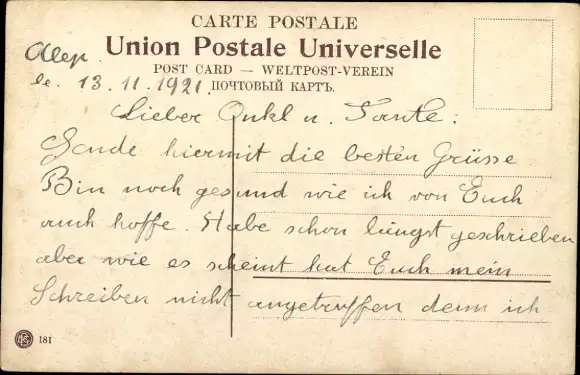 CARTE POSTALE
Union Postale Universelle
POST CARD — WELTPOST-VEREIN
ПОЧТОВЫЙ КАРТЪ.
Alep.
le. 13.11.1921.
Lieber Onkl u. Tante:
Sende hiermit die besten Grüsse
Bin noch gesund wie ich von Euch
auch hoffe. Habe schon längst geschrieben
aber wie es scheint hat Euch mein
Schreiben nicht angetroffen denn ich
181